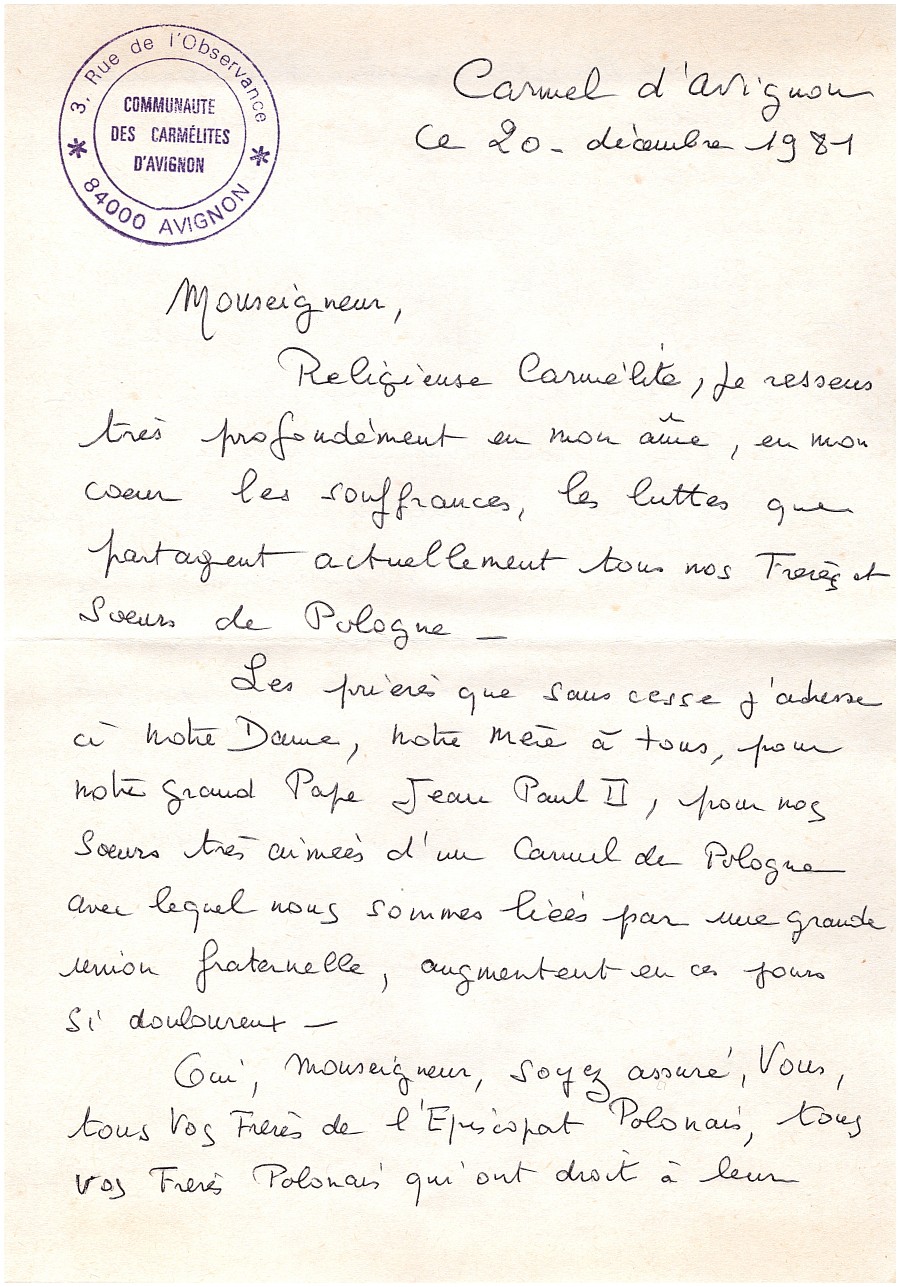 3, Rue de l'Observance
COMMUNAUTE
DES CARMÉLITES
D'AVIGNON
* 84000 AVIGNON *
Carmel d'Avignon
Ce 20 - décembre 1981
Monseigneur,
Religieuse Carmélite, je ressens
très profondément en mon âme, en mon
coeur les souffrances, les luttes que
partagent actuellement tous nos Frères et
Soeurs de Pologne -
Les prières que sans cesse j'adresse
à Notre Dame, notre Mère à tous, pour
notre grand Pape Jean Paul II, pour nos
Soeurs très aimées d'un Carmel de Pologne
avec lequel nous sommes liées par une grande
union fraternelle, augmentent en ces jours
si douloureux -
Oui, Monseigneur, soyez assuré, Vous,
tous Vos Frères de l'Episcopat Polonais, tous
vos Frères Polonais qui ont droit à leur